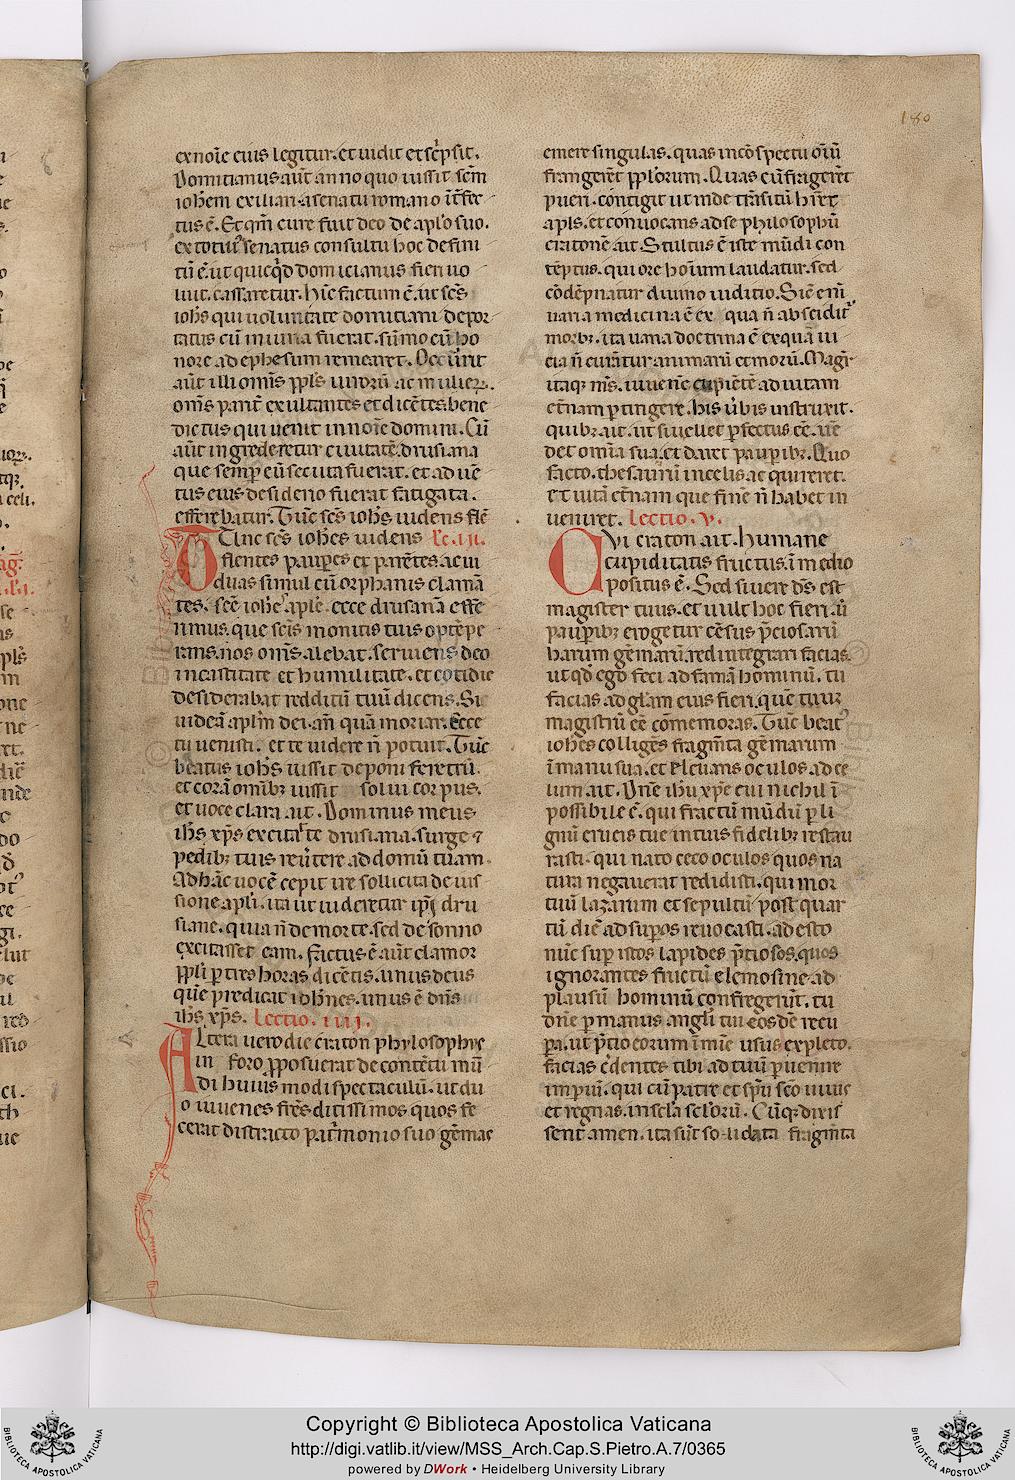 180
ex noĩe eius legitur. et uidit et scᵽsit.
Domitianus aũt anno quo iussit scm̃
ioh̃em exilian. a senatu romano ĩt̃fec
tus ẽ. Et qm̃ cure fuit deo de apl̃o suo.
ex totiᷤ senatus consultu hoc defini
tũ ẽ. ut quicq̃d domicianus fieri uo
luit. cassaretur. hĩc factum ẽ. ut sc̃s
ioh̃s qui uoluntate domitiani depor
tatus cũ iniuria fuerat. sũmo cũ ho
nore ad ephesum remearet. Occũrit
aũt illi om̃is ppl̃s uirorũ ac mulierꝝ.
om̃s parit̃ exultantes et dicẽtes. bene
dictus qui uenit in noĩe domini. Cũ
aũt ingrederetur ciuitatẽ. drusiana
que semp̃ eũ secuta fuerat. et aduẽ
tus eius desiderio fuerat fatigata.
efferebatur. Tũc sc̃s ioh̃s uidens flẽ
Tunc sc̃s ioh̃es uidens Lc̃. iii.
flentes paup̃es et parẽtes. ac ui
duas simul cũ orphanis clamã
tes. sc̃e ioh̃e apl̃e. ecce drusianã effe
rimus. que sc̃is monitis tuis optẽpe
rans. nos om̃s alebat. seruiens deo
in castitate et humilitate. et cotidie
desiderabat redditũ tuũ dicens. Si
uideã apl̃m dei. añ quã moriar. Ecce
tu uenisti. et te uidere ñ potuit. Tũc
beatus ioh̃s iussit deponi feretrũ.
et corã omĩbꝫ iussit solui corpus.
et uoce clara ait. Dominus meus
ih̃s xp̃s excitat te drusiana. surge ⁊
pedibꝫ tuis reũtere ad domũ tuam.
Ad hãc uocẽ cepit ire sollicita de uis
sione apl̃i. ita ut uideretur ip̃i dru
siane. quia ñ de morte. sed de sonno
excitasset eam. factus ẽ aũt clamor
ppl̃i ꝑ tres horas dicẽtis. unus deus
quẽ predicat ioh̃nes. unus ẽ dñs
ih̃s xp̃s. Lectio. iiii.
Altera uero die craton phylosophus
in foro ꝓposuerat de contẽtu mũ
di huius modi spectaculũ. ut du
o iuuenes fr̃es ditissimos quos fe
cerat districto pat̃monio suo gẽmas
emere singulas. quas in cõspectu oĩũ
frangerẽt ppl̃orum. Quas cũ frãgerẽt
pueri. contigit ut inde trãsitũ hr̃et
apl̃s. et conuocans ad se philosophũ
cratonẽ ait. Stultus ẽ iste mũdi con
tẽptus. qui ore hoĩum laudatur. sed
cõdẽpnatur diuino iuditio. Sic̃ eni᷑
uana medicina ẽ ex qua ñ abscidit᷑
morbꝰ. ita uana doctrina ẽ ex qua ui
cia ñ curãtur animarũ et morũ. Magr̃
itaqꝫ m̃s. iuuenẽ cupiẽtẽ ad uitam
et̃nam ꝑtingere. his ũbis instruxit.
quibꝫ ait. ut si uellet ꝑfectus eẽ. uẽ
det omĩa sua. et daret paupibꝫ. Quo
facto. thesaurũ in celis acquireret.
et uitã et̃nam que finẽ ñ habet in
ueniret. Lectio. v.
Cui craton ait. humane
cupiditatis fructus. ĩ medio
positus ẽ. Sed si uere ds̃ est
magister tuus. et uult hoc fieri. ũ
paupibꝫ erogetur cẽsus p̃ciosarũ
harum gẽmarũ. redintegrari facias.
ut qd̃ ego feci ad famã hominũ. tu
facias ad gl̃am eius fieri. quẽ tuuꝫ
magistrũ eẽ cõmemoras. Tũc beatꝰ
iohes colligẽs fragm̃ta gẽmarum
ĩ manu sua. et eleuans oculos ad ce
lum ait. Dñe ih̃u xp̃e cui nichil ĩ
possibile ẽ. qui fractũ mũdũ ꝑ li
gnũ crucis tue in tuis fidelibꝫ restau
rasti. qui nato ceco oculos quos na
tura negauerat redidisti. qui mor
tuũ lazarum et sepultũ post quar
tũ diẽ ad suꝑos reuocasti. adesto
nũc suꝑ istos lapides p̃tiosos. quos
ignorantes fructũ elemosine. ad
plausũ hominũ confregerũt. tu
dñe ꝑ manus angl̃i tui eos dẽ recu
ꝑa. ut p̃tio eorum ĩ mie usus expleto.
facias c̃dentes tibi ad tuũ ꝑuenire
imꝑiũ. qui cũ patre et sp̃u sc̃o uiuis
et regnas. in sc̃la sc̃loꝝ. Cũqꝫ dixis
sent amen. ita sũt solidata fragm̃ta
Copyright © Biblioteca Apostolica Vaticana
http://digi.vatlib.it/view/MSS_Arch.Cap.S.Pietro.A.7/0365
powered by DWork • Heidelberg University Library
BIBLIOTECA APOSTOLICA VATICANA
BIBLIOTECA APOSTOLICA VATICANA